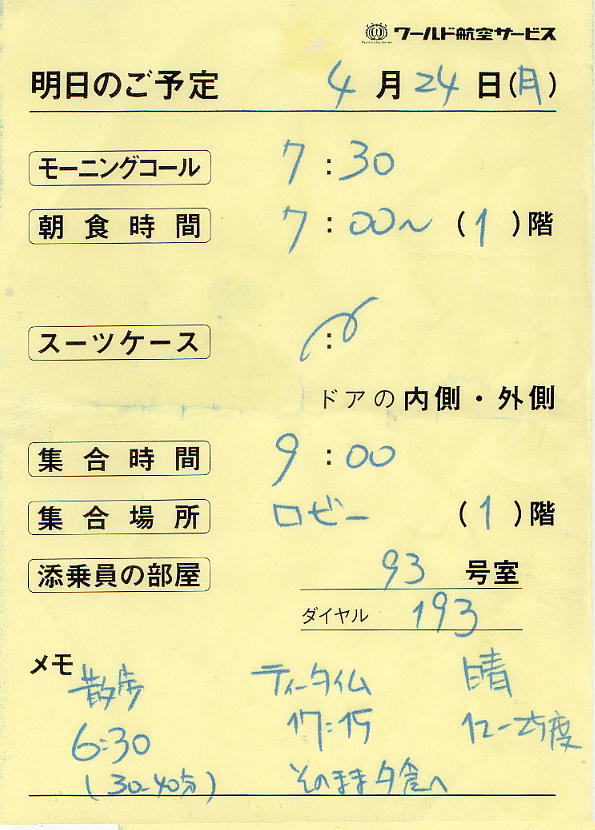 ワールド航空サービス
明日のご予定 4月24日(月)
モーニングコール 7:30
朝食時間 7:00~ (1)階
スーツケース :
ドアの内側・外側
集合時間 9:00
集合場所 ロビー (1)階
添乗員の部屋 93号室
ダイヤル 193
メモ 散歩 ティータイム 晴
6:30 17:15 12-25度
(30-40分) そのまま夕食へ